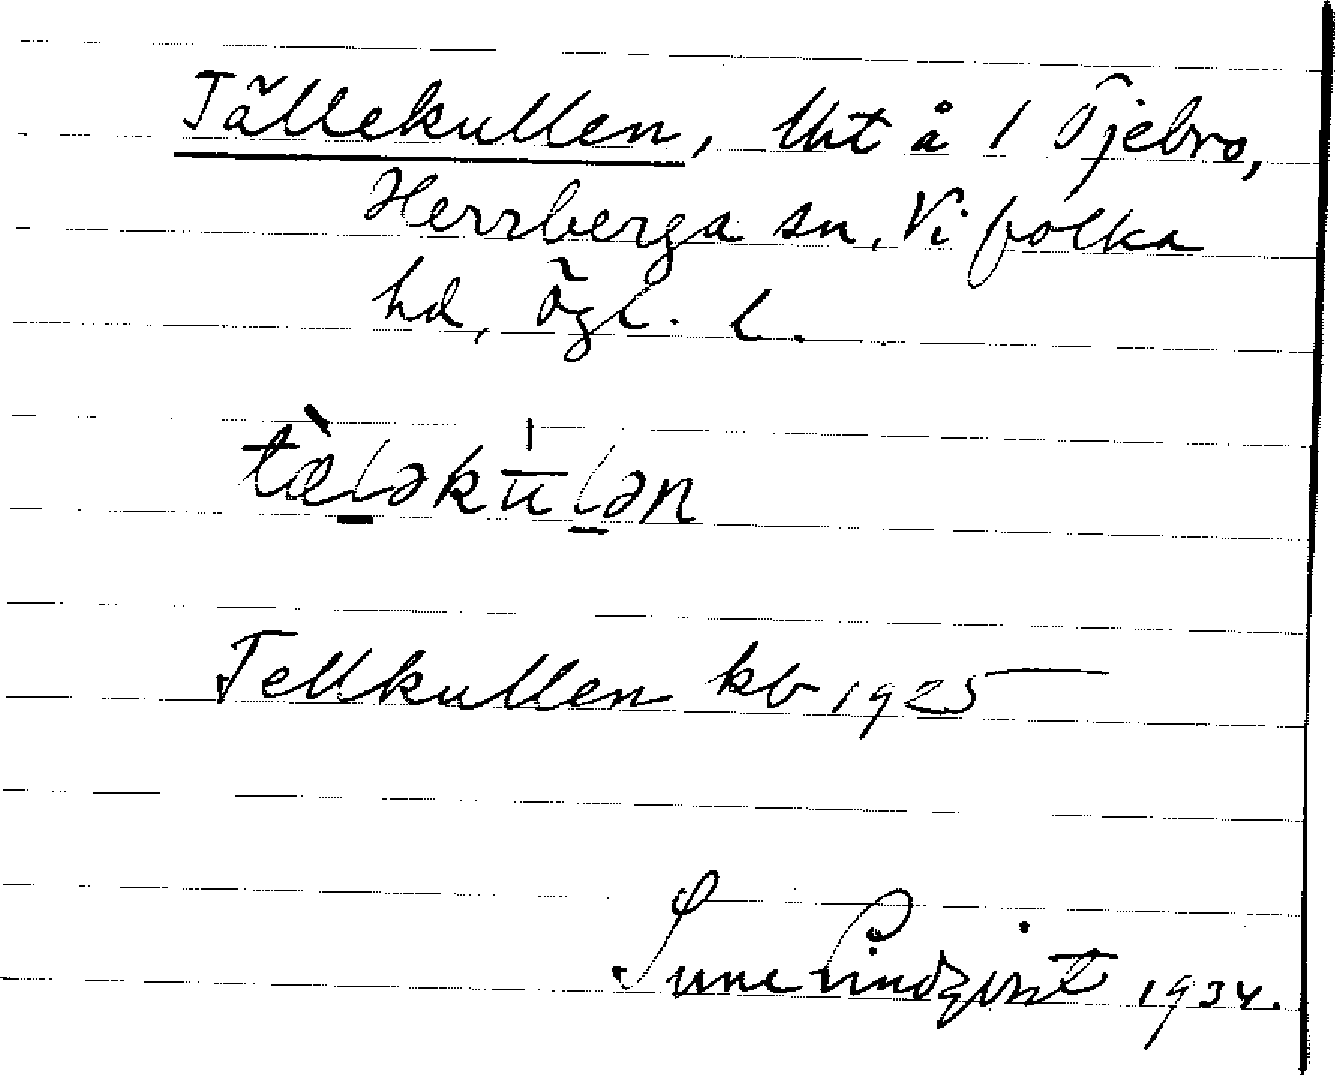 Tällekullen, lht å 1 Öjebro,
Herrberga sn, Vifolka
hd, Ögl. l.
tæ̀ləku̅lən
Tellkullen kb 1925
Sune Lindqvist 1934.